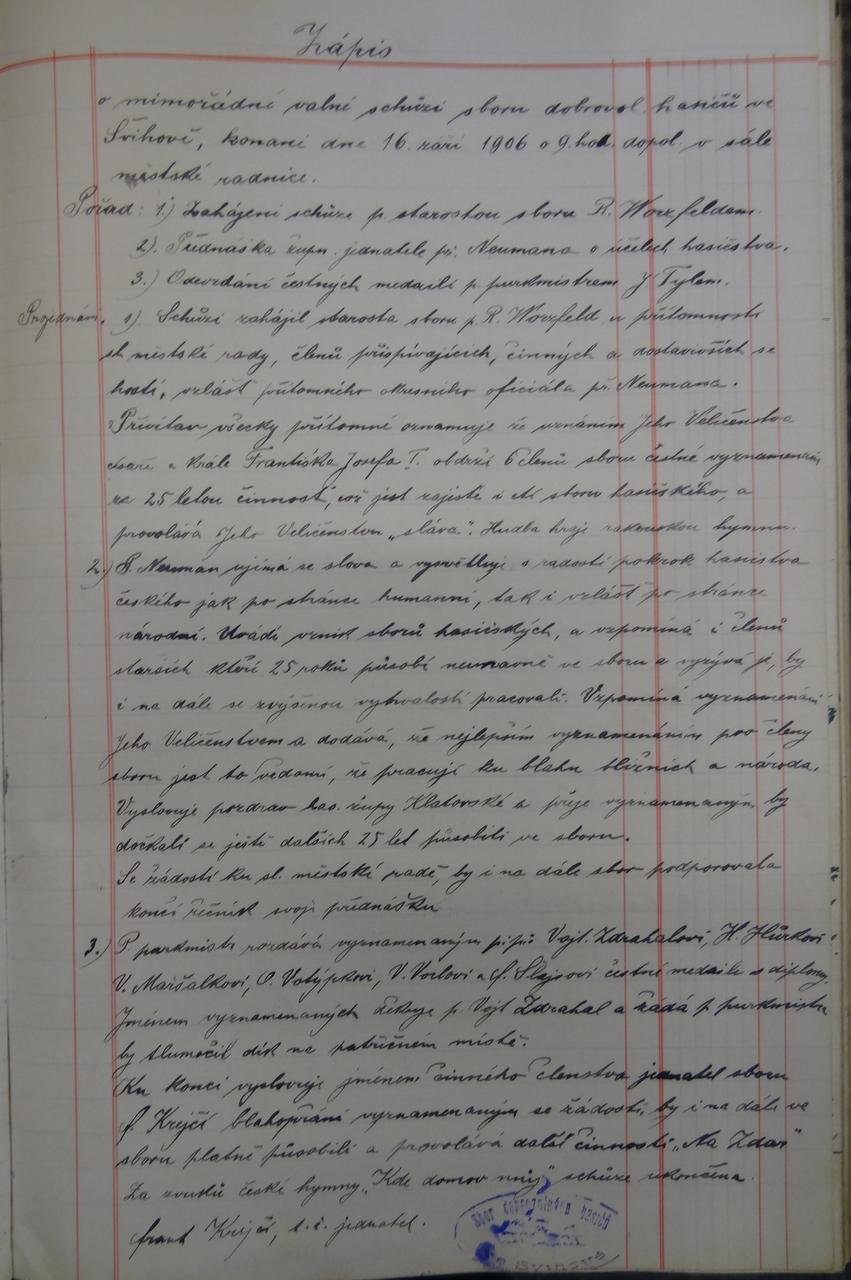 Zápis
o mimořádné valné schůzi sboru dobrovol. hasičů ve
Švihově, konané dne 16. září 1906 o 9. hod. dopol. v sále
městské radnice.
Pořad: 1.) Zahájení schůze p. starostou sboru R. Worzfeldem.
2). Přednáška župn. jednatele př. Neumana o účelech hasičstva.
3.) Odevzdání čestných medailí p. purkmistrem J Tylem.
Projednání. 1). Schůzi zahájil starosta sboru p. R. Worzfeld u přítomnosti
sl. městské rady, členů přispívajících, činných a dostavivších se
hostí, vzlášť přítomného okresního oficiála př. Neumana.
Přivítav všecky přítomné oznamuje že uznáním Jeho Veličenstva
císaře a krále Františka Josefa I. obdrží 6 členů sboru čestné vyznamenání
za 25 letou činnost, což jest zajisté i ctí sboru hasičského, a
provolává Jeho Veličenstvu „sláva". Hudba hraje rakouskou hymnu.
2.) P. Neuman ujímá se slova a vysvětluje s radostí pokrok hasičstva
českého jak po stránce humanní, tak i vzlášť po stránce
národní. Uvádí vznik sborů hasičských, a vzpomíná i členů
starších kteří 25 roků působí neunavně ve sboru a vyzývá je, by
i na dále se zvýšenou vytrvalostí pracovali. Vzpomíná vyznamenání
Jeho Veličenstvem a dodává, že nejlepším vyznamenáním pro členy
sboru jest to vědomí, že pracují ku blahu bližních a národa.
Vyslovuje pozdrav has. župy Klatovské a přeje vyznamenaným by
dočkali se ještě dalších 25 let působili ve sboru.
Se žádostí ku sl. městské radě, by i na dále sbor podporovala
končí řečník svoji přednášku
3.) P. purkmistr rozdává vyznamenaným pp. Vojt. Zdrahalovi, H. Hůrkovi
V. Maršalkovi, O. Votýpkovi, V. Vorlovi a f. čestné medaile s diplomy.
Jménem vyznamenaných děkuje p. Vojt Zdrahal a žádá p purkmistra
by tlumočil dík na patřičném místě.
Ku konci vyslovuje jménem činného členstva jednatel sboru
f. Krejčí blahopřání vyznamenaným se žádostí, by i na dále ve
sboru platně působili a provolává další činnosti „Na Zdar"
Za zvuků české hymny „Kde domov můj" schůze ukončena.
frant Krejčí, t. č. jednatel.
Sbor dobrovolných hasičů
ve Švihově